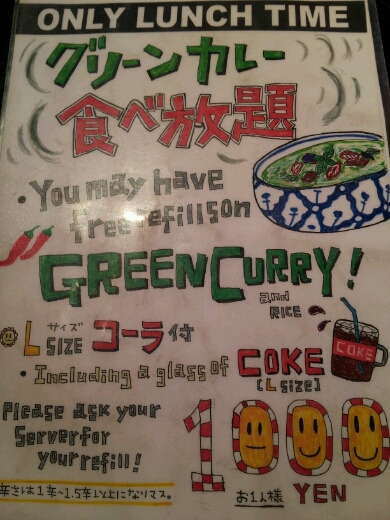 ONLY LUNCH TIME
グリーンカレー
食べ放題
・You may have
free refills on
GREEN CURRY!
and
RICE
L サイズ SIZE コーラ付
COKE
・Including a glass of COKE
[L size]
Please ask your
Server for
your refill!
1000
お1人様 YEN
辛さは1辛~1.5辛以上になりマス。